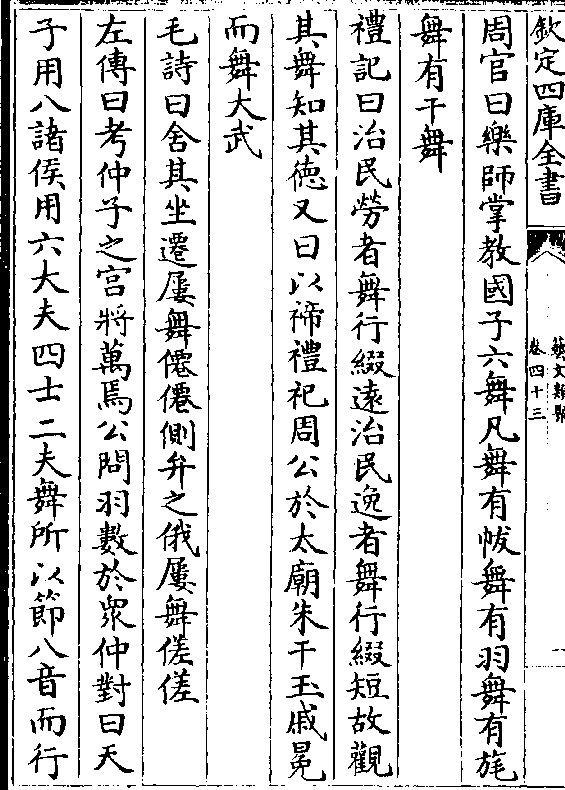 欽定四庫全書
藝文類聚
卷四十三
周官曰樂師掌教國子六舞凡舞有帗舞有羽舞有旄
舞有干舞
禮記曰治民勞者舞行綴遠治民逸者舞行綴短故觀
其舞知其德又曰以禘禮祀周公於太廟朱干玉戚冕
而舞大武
毛詩曰舍其坐遷屢舞僊僊側弁之俄屢舞傞傞
左傳曰考仲子之宮將萬焉公問羽數於衆仲對曰天
子用八諸侯用六大夫四士二夫舞所以節八音而行